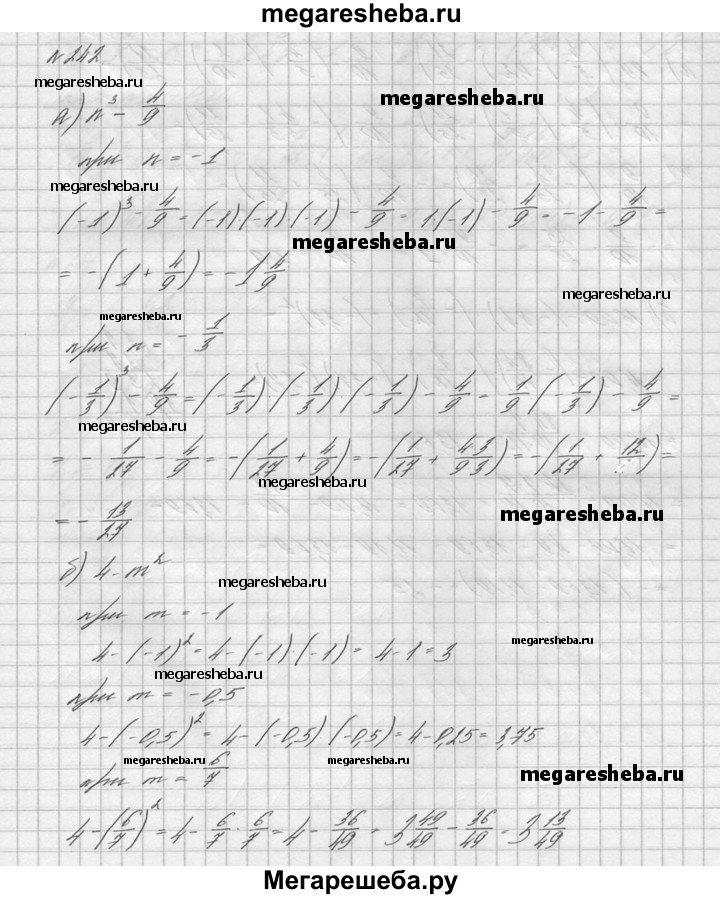 megaresheba.ru
№ 242
megaresheba.ru
а) n³ - 4/9
megaresheba.ru
при n = -1
megaresheba.ru
(-1)³ - 4/9 = (-1)(-1)(-1) - 4/9 = 1·(-1) - 4/9 = -1 - 4/9 =
megaresheba.ru
= -(1 + 4/9) = -1 4/9
megaresheba.ru
megaresheba.ru
при n = -1/3
(-1/3)³ - 4/9 = (-1/3)(-1/3)(-1/3) - 4/9 = 1/9 (-1/3) - 4/9 =
megaresheba.ru
= - 1/27 - 4/9 = -(1/27 + 4/9) = -(1/27 + 4·3/9·3) = -(1/27 + 12/) =
megaresheba.ru
= - 13/27
megaresheba.ru
б) 4 - m²
megaresheba.ru
при m = -1
megaresheba.ru
4 - (-1)² = 4 - (-1)·(-1) = 4 - 1 = 3
megaresheba.ru
при m = -0,5
4 - (-0,5)² = 4 - (-0,5)(-0,5) = 4 - 0,25 = 3,75
megaresheba.ru
megaresheba.ru
при m = 6/7
megaresheba.ru
4 - (6/7)² = 4 - 6/7 · 6/7 = 4 - 36/49 = 3 49/49 - 36/49 = 3 13/49
Мегарешеба.ру